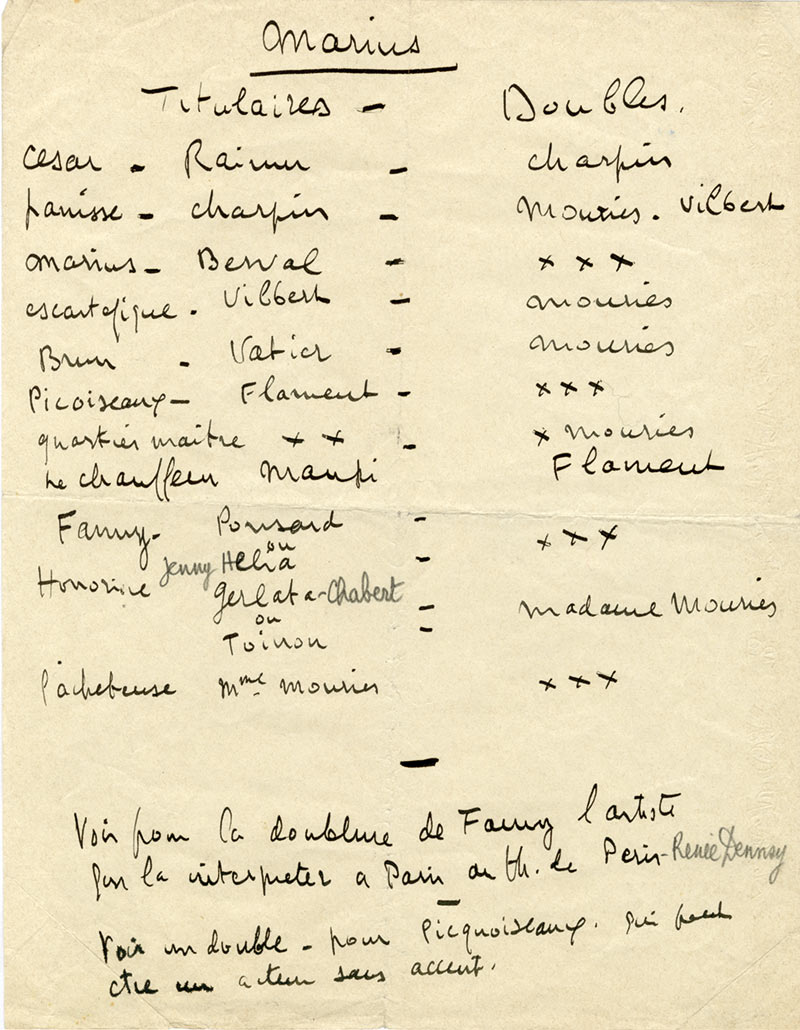 Marius
Titulaires - Doubles.
Cesar - Raimu - charpin
panisse - charpin - Mouries. Vilbert
marius - Berval - x x x
escartefigue. Vilbert - mouries
Brun - Vatier - mouries
Picoiseaux - Flament - xxx
quartier maitre x x - x mouries
Le chauffeur Maupi Flament
Fanny - Pousard - x x x
ou
Honorine Jenny Hélia -
Gerlata-Chabert - madame Mouries
ou
Toinon -
l'acheteuse Mme mouries x x x
-
Voir pour la doublure de Fanny l'artiste
la interpreter a Paris au th. de Paris-Renée Dennsy
-
Voir un double - pour Picquoiseaux. qui peut
etre un acteur sans accent.